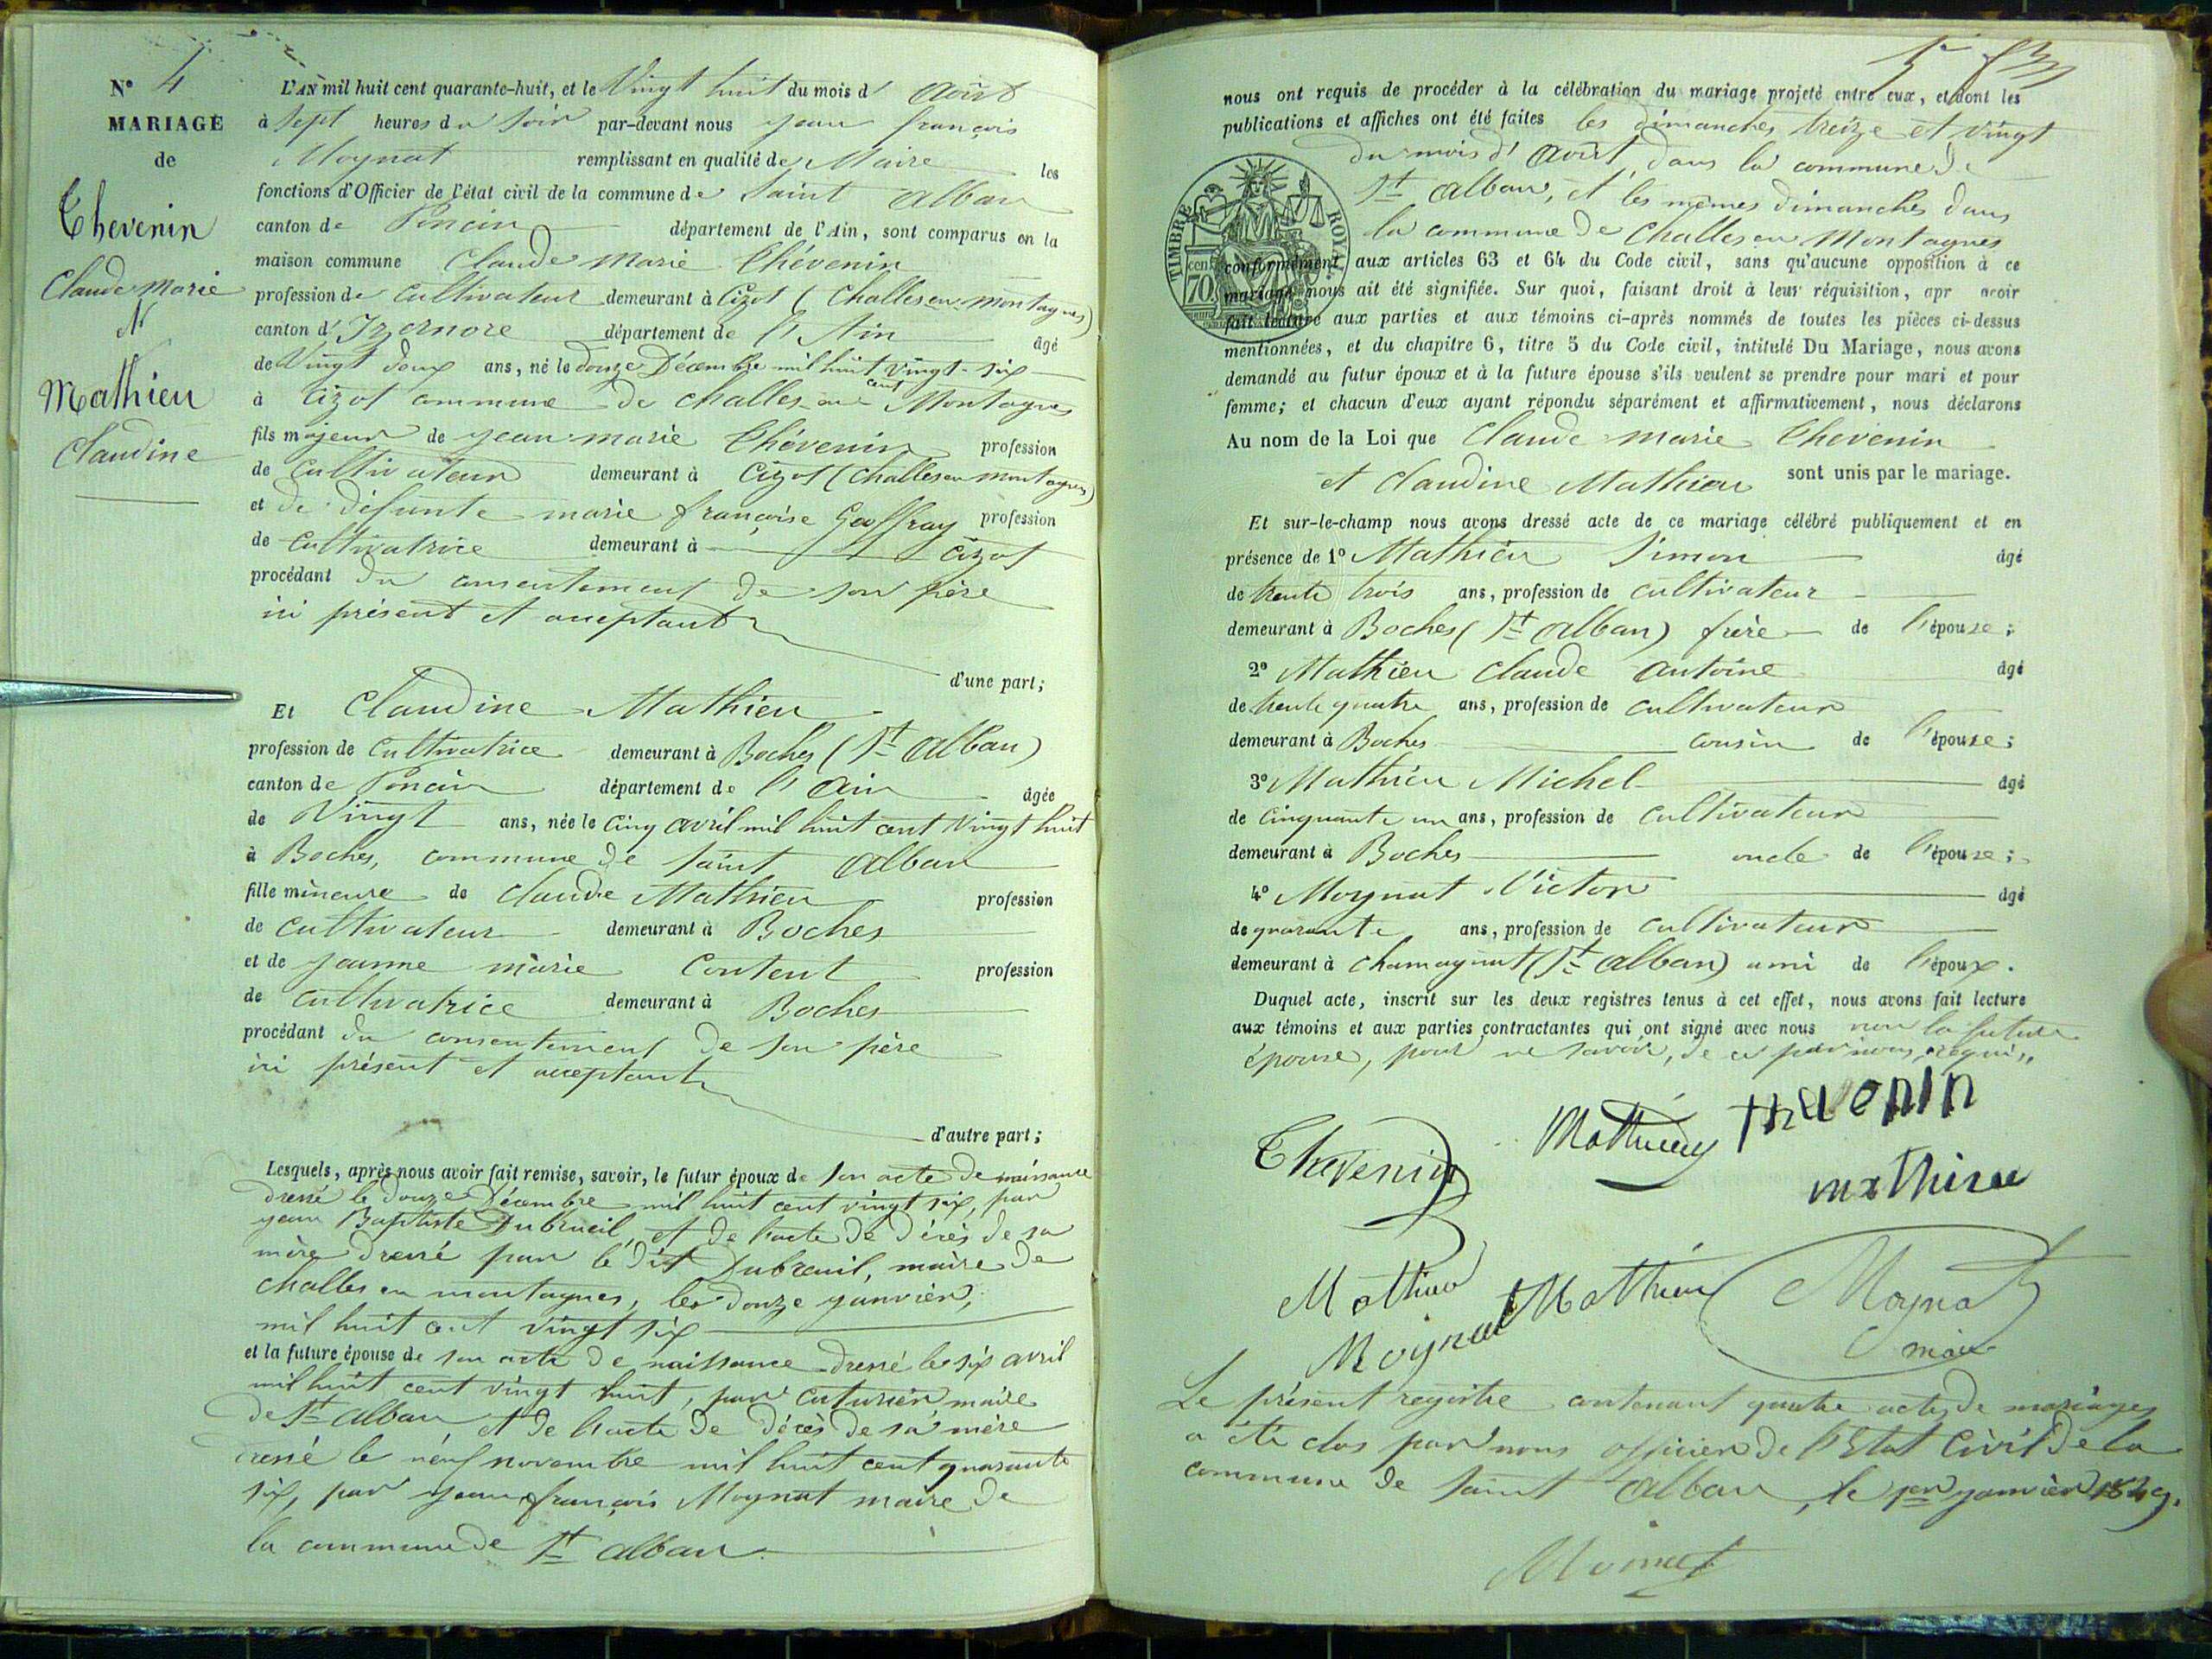 N° 4
MARIAGE
de
Thevenin
Claude Marie
N
Mathieu
Claudine
L'AN mil huit cent quarante-huit, et le Vingt huit du mois d' Août
à Sept heures du Soir par-devant nous Jean françois
Moynat remplissant en qualité de Maire les
fonctions d'Officier de l'état civil de la commune de Saint Alban
canton de Poncin département de l'Ain, sont comparus en la
maison commune Claude Marie Thévenin
profession de Cultivateur demeurant à Cizot (Challes en montagnes)
canton d'Izernore département de l'Ain âgé
de Vingt deux ans, né le douze Décembre mil huit cent Vingt-six
à Cizot commune de Challes en Montagnes
fils majeur de Jean marie Thévenin profession
de Cultivateur demeurant à Cizot (Challes en montagnes)
et de défunte marie françoise Geoffray profession
de Cultivatrice demeurant à Cizot
procédant du consentement de son père
ici présent et acceptant
d'une part;
Et Claudine Mathieu
profession de Cultivatrice demeurant à Boches (St Alban)
canton de Poncin département de l'Ain âgée
de Vingt ans, née le Cinq avril mil huit cent Vingt huit
à Boches, commune de Saint Alban
fille mineure de Claude Mathieu profession
de Cultivateur demeurant à Boches
et de Jeanne marie Content profession
de Cultivatrice demeurant à Boches
procédant du consentement de son père
ici présent et acceptant
d'autre part;
Lesquels, après nous avoir fait remise, savoir, le futur époux de son acte de naissance
dressé le douze Décembre mil huit cent vingt six, par
Jean Baptiste Dubreuil, et de l'acte de décès de sa
mère dressé par le dit Dubreuil, maire de
Challes en montagnes, le douze janvier,
mil huit cent vingt six
et la future épouse de son acte de naissance dressé le six avril
mil huit cent vingt huit, par Couturier, maire
de St Alban, et de l'acte de décès de sa mère
dressé le neuf novembre mil huit cent quarante
six, par Jean françois Moynat maire de
la commune de St Alban
nous ont requis de procéder à la célébration du mariage projeté entre eux, et dont les
publications et affiches ont été faites les dimanches treize et vingt
du mois d'Août, dans la commune de
St Alban, et les mêmes dimanches dans
la commune de Challes en Montagnes
TIMBRE ROYAL
cen
70
conformément aux articles 63 et 64 du Code civil, sans qu'aucune opposition à ce
mariage nous ait été signifiée. Sur quoi, faisant droit à leur réquisition, apr avoir
fait lecture aux parties et aux témoins ci-après nommés de toutes les pièces ci-dessus
mentionnées, et du chapitre 6, titre 5 du Code civil, intitulé Du Mariage, nous avons
demandé au futur époux et à la future épouse s'ils veulent se prendre pour mari et pour
femme; et chacun d'eux ayant répondu séparément et affirmativement, nous déclarons
Au nom de la Loi que Claude marie Thevenin
et Claudine Mathieu sont unis par le mariage.
Et sur-le-champ nous avons dressé acte de ce mariage célébré publiquement et en
présence de 1° Mathieu Simon âgé
de trente trois ans, profession de cultivateur
demeurant à Boches (St Alban) frère de l'épouse;
2° Mathieu Claude Antoine âgé
de trente quatre ans, profession de cultivateur
demeurant à Boches cousin de l'épouse;
3° Mathieu Michel âgé
de Cinquante un ans, profession de Cultivateur
demeurant à Boches oncle de l'épouse;
4° Moynat Victor âgé
de quarante ans, profession de Cultivateur
demeurant à Chamagnat (St Alban) ami de l'époux.
Duquel acte, inscrit sur les deux registres tenus à cet effet, nous avons fait lecture
aux témoins et aux parties contractantes qui ont signé avec nous non la future
épouse, pour ne savoir, de ce par nous requis,,
Thevenin Mathieu Thevenin
mathieu
Mathieu Mathieu Moynat
Moynat maire
Le présent registre contenant quatre actes de mariages
a été clos par nous officier de l'Etat Civil de la
commune de Saint Alban, le per janvier 1849.
Moinat